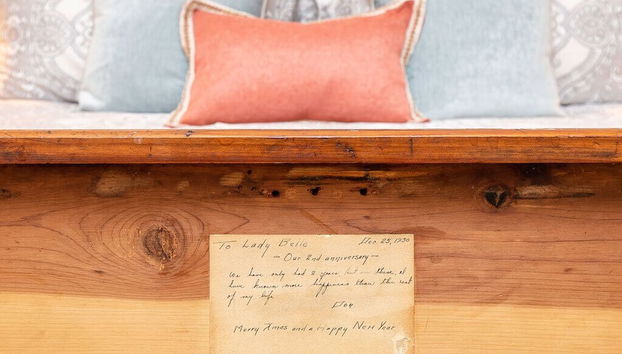 To Lady Belle Dec 25, 1930
— Our 2nd anniversary —
We have only had 2 years, but — these, I
have known more happiness than the rest
of my life.
Don
Merry Xmas and a Happy New Year